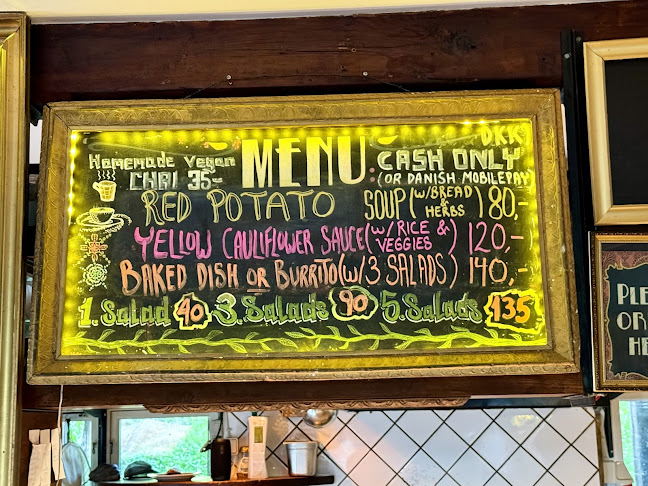 DKK
Homemade Vegan
CHAI 35-
MENU:
CASH ONLY
(OR DANISH MOBILEPAY
RED POTATO SOUP (W/BREAD & HERBS) 80,-
YELLOW CAULIFLOWER SAUCE (W/RICE & VEGGIES) 120,-
BAKED DISH OR BURRITO (W/3 SALADS) 140,-
1. Salad 40 3. Salads 90 5. Salads 135